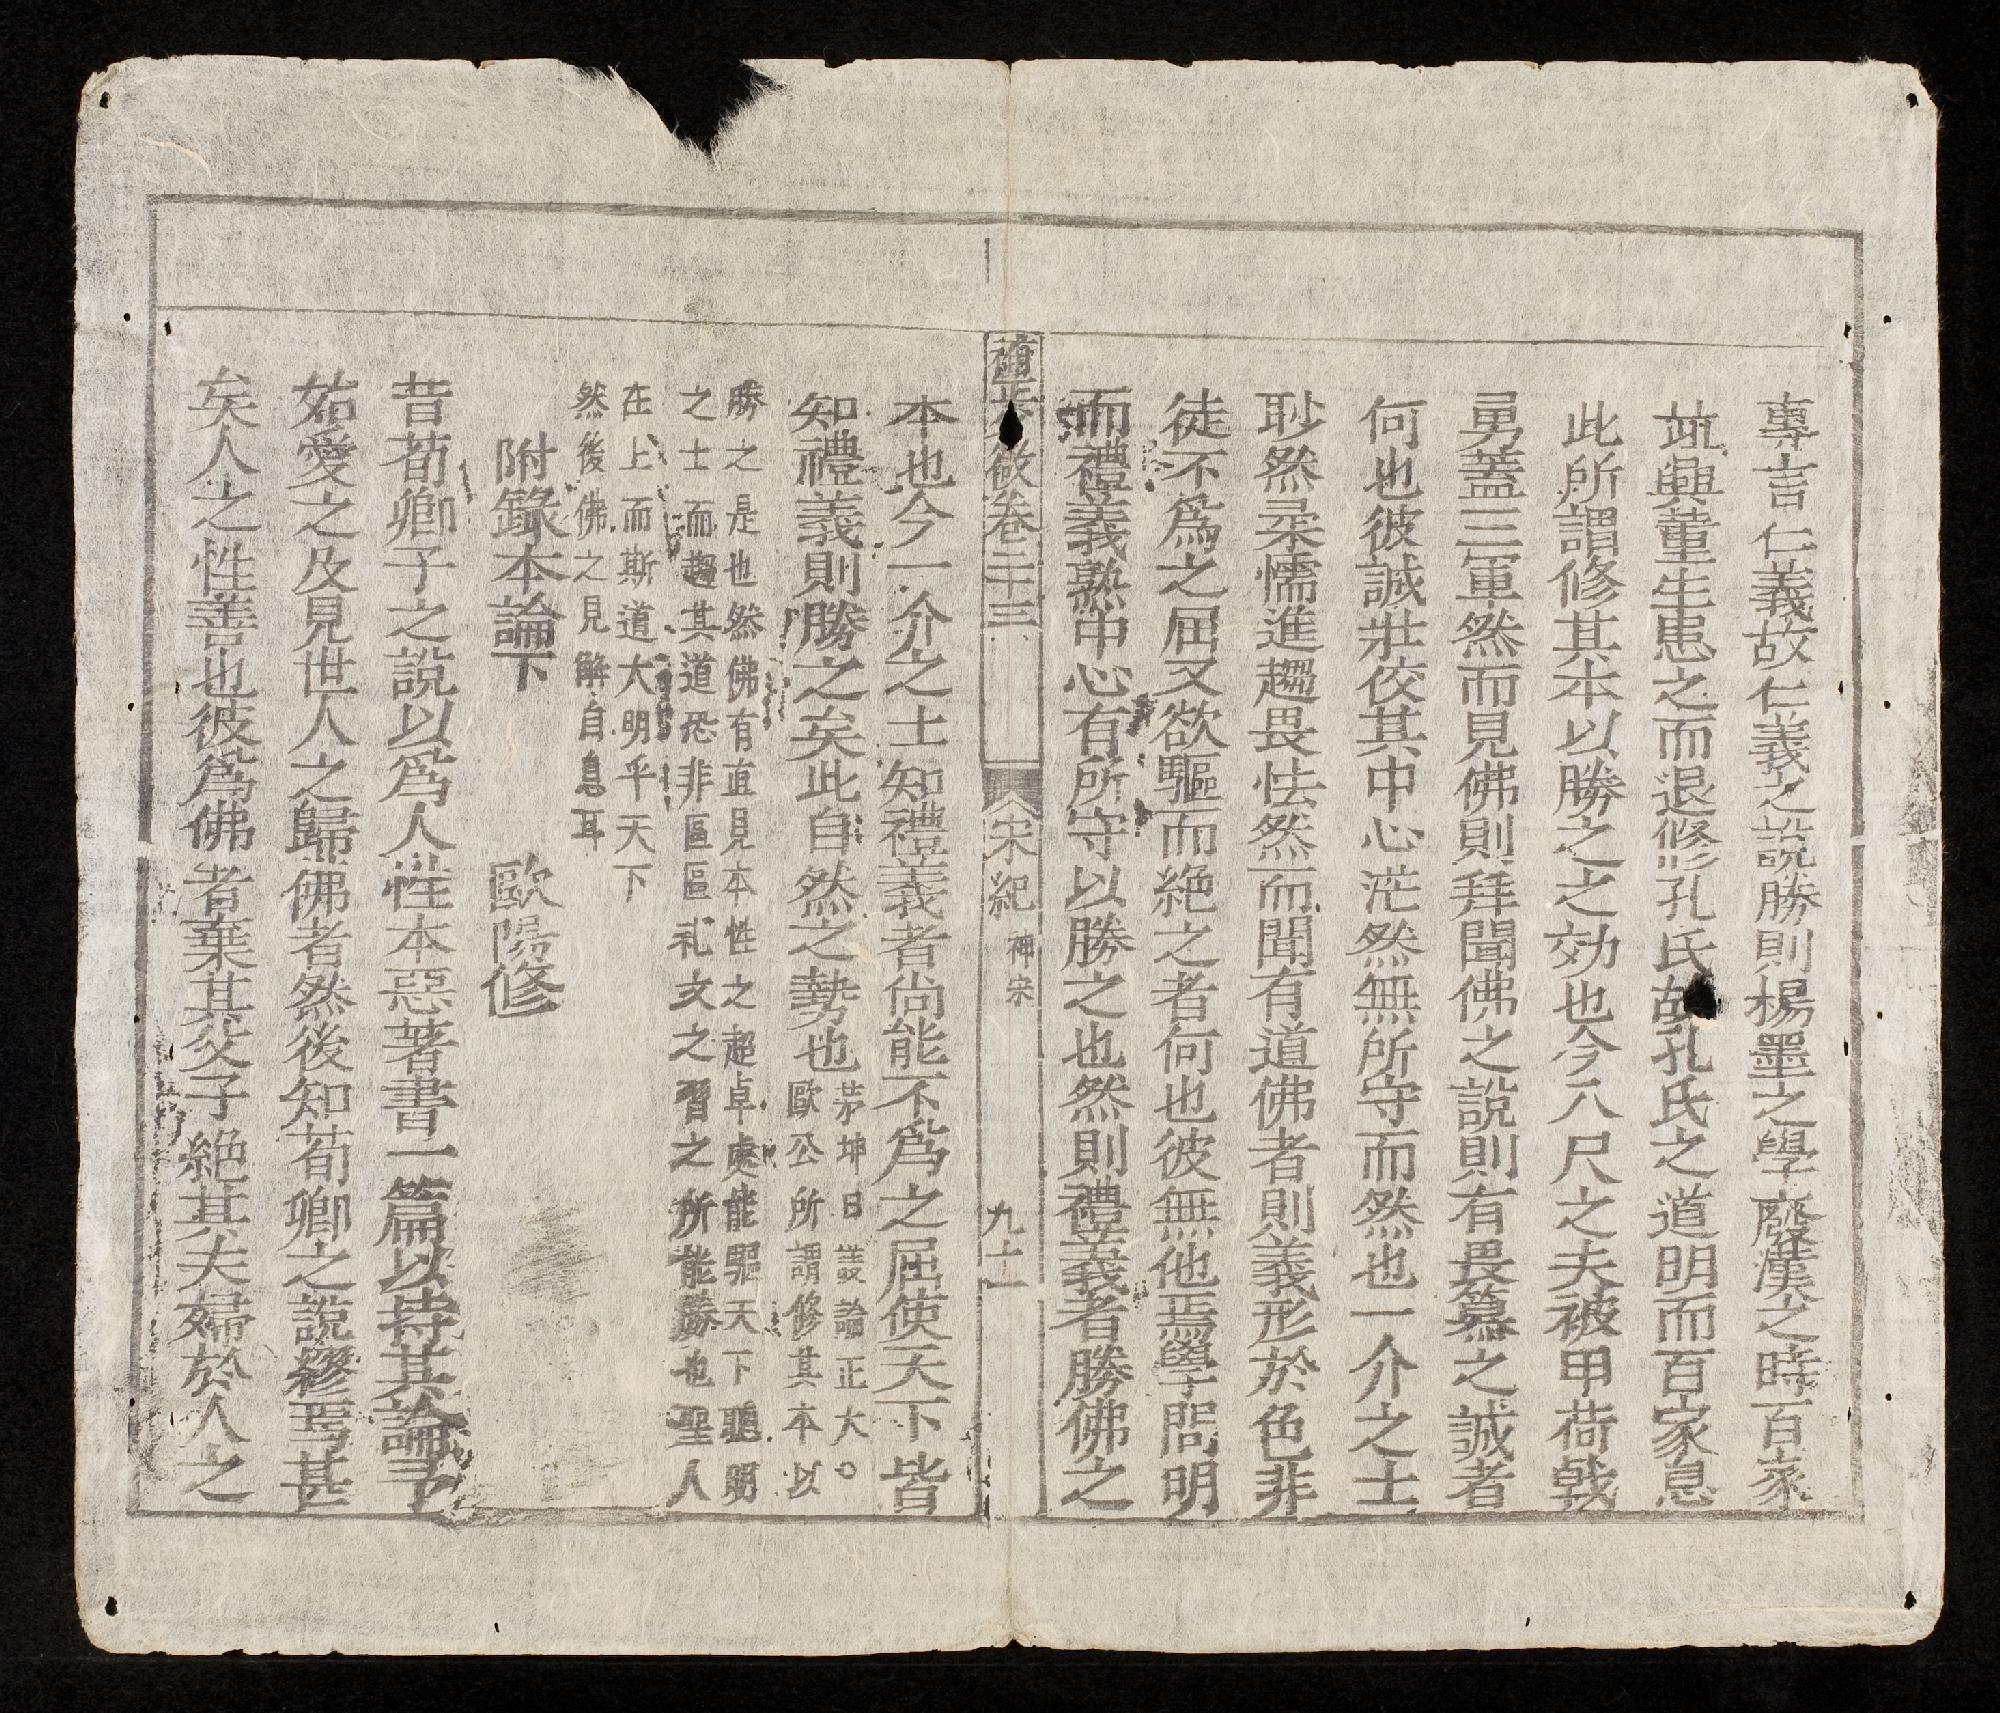 專言仁義故仁義之說勝則楊墨之學廢漢之時百家
並興董生患之而退修孔氏故孔氏之道明而百家息
此所謂修其本以勝之之効也今八尺之夫被甲荷戟
勇蓋三軍然而見佛則拜聞佛之說則有畏慕之誠者
何也彼誠壯佼其中心茫然無所守而然也一介之士
眇然柔懦進趨畏怯然而聞有道佛者則義形於色非
徒不爲之屈又欲驅而絶之者何也彼無他焉學問明
而禮義熟中心有所守以勝之也然則禮義者勝佛之
卷二十三 宋紀 神宗 九十一
本也今一介之士知禮義者尚能不爲之屈使天下皆
知禮義則勝之矣此自然之勢也
茅坤曰議論正大○
歐公所謂修其本以
勝之是也然佛有直見本性之超卓處能驅天下聰明
之士而趨其道恐非區區礼文之習之所能勝也聖人
在上而斯道大明乎天下
然後佛之見解自息耳
附錄本論下 歐陽修
昔荀卿子之說以爲人性本惡著書一篇以持其論予
始愛之及見世人之歸佛者然後知荀卿之說繆焉甚
矣人之性善也彼爲佛者棄其父子絶其夫婦於人之